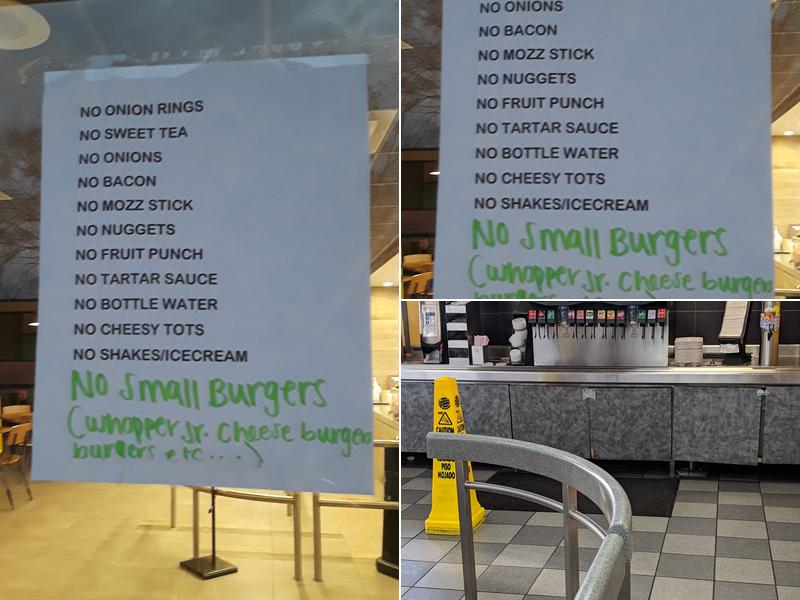 NO ONION RINGS
NO SWEET TEA
NO ONIONS
NO BACON
NO MOZZ STICK
NO NUGGETS
NO FRUIT PUNCH
NO TARTAR SAUCE
NO BOTTLE WATER
NO CHEESY TOTS
NO SHAKES/ICECREAM
No Small Burgers
(whopper Jr. Cheese burger
burgers etc...)
NO ONIONS
NO BACON
NO MOZZ STICK
NO NUGGETS
NO FRUIT PUNCH
NO TARTAR SAUCE
NO BOTTLE WATER
NO CHEESY TOTS
NO SHAKES/ICECREAM
No Small Burgers
(whopper Jr. Cheese burger
CAUTION
PISO
MOJADO